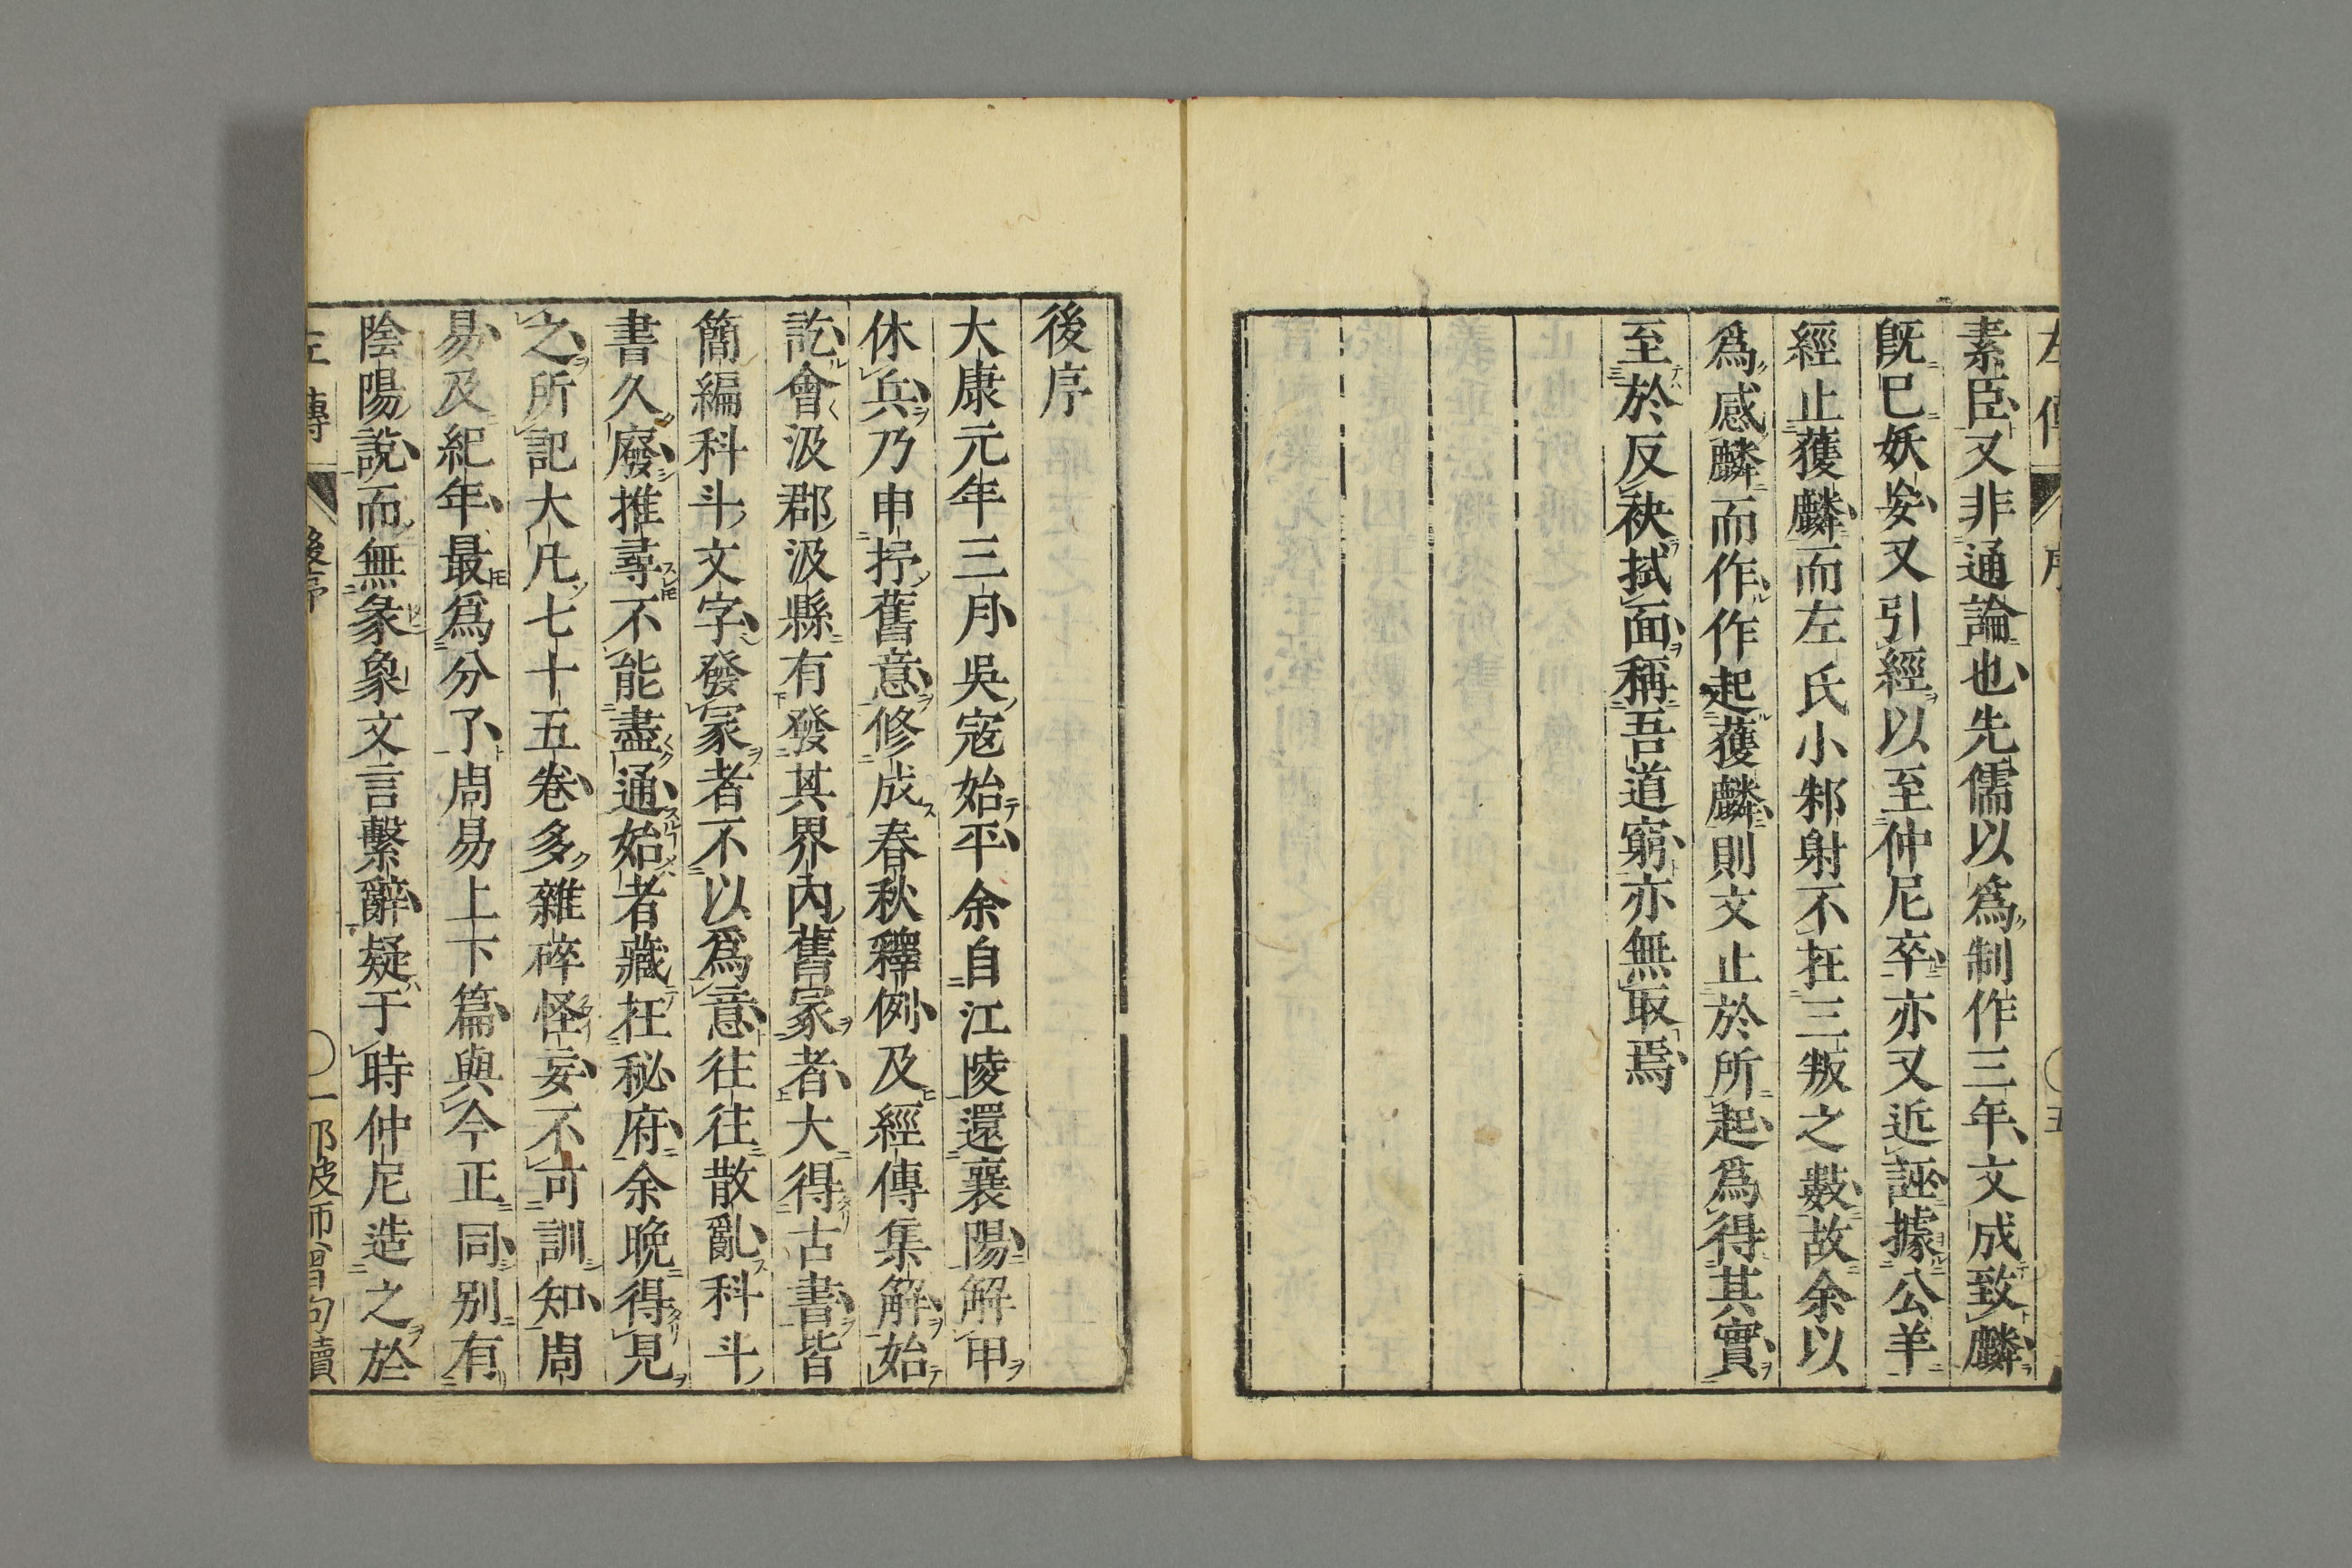 左傳 序 五
素臣又非通論也先儒以爲制作三年文成致麟
旣已妖妄又引經以至仲尼卒亦又近誣據公羊
經止獲麟而左氏小邾射不在三叛之數故余以
爲感麟而作作起獲麟則文止於所起爲得其實
至於反袂拭面稱吾道窮亦無取焉
後序
大康元年三月吳寇始平余自江陵還襄陽解甲
休兵乃申抒舊意修成春秋釋例及經傳集解始
訖會汲郡汲縣有發其界內舊冢者大得古書皆
簡編科斗文字發冢者不以爲意往往散亂科斗
書久廢推尋不能盡通始者藏在秘府余晚得見
之所記大凡七十五卷多雜碎怪妄不可訓知周
易及紀年最爲分了周易上下篇與今正同別有
陰陽說而無彖象文言繫辭疑于時仲尼造之於
左傳 後序 一 那波師曾句讀